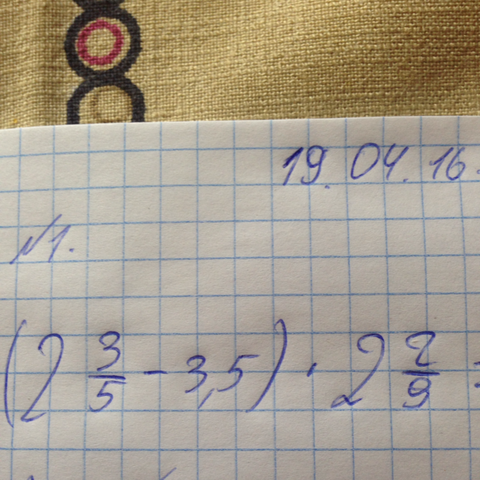 19.04.16.
№1.
(2 3/5 - 3,5) · 2 2/9 =